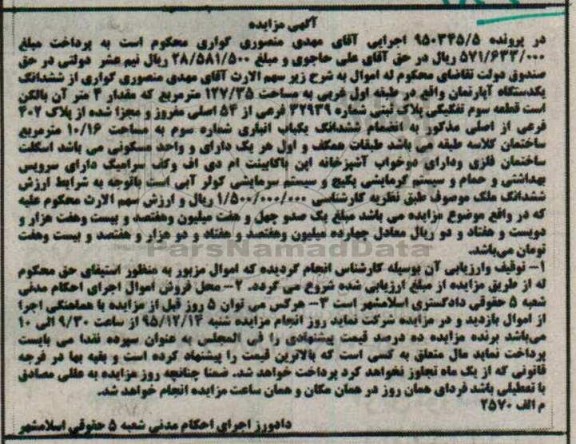 آگهی مزایده
در پرونده ۹۵۰۳۴۵/۵ اجرایی آقای مهدی منصوری کواری محکوم است به پرداخت مبلغ
۵۷۱/۶۳۳/۰۰۰ ریال در حق آقای علی حاجوی و مبلغ ۲۸/۵۸۱/۵۰۰ ریال نیم عشر دولتی در حق
صندوق دولت تقاضای محکوم له اموال به شرح زیر سهم الارث آقای مهدی منصوری کواری از ششدانگ
یکدستگاه آپارتمان واقع در طبقه اول غربی به مساحت ۱۲۷/۳۵ مترمربع که مقدار ۴ متر آن بالکن
است قطعه سوم تفکیکی پلاک ثبتی شماره ۳۲۹۳۹ فرعی از ۵۴ اصلی مفروز و مجزا شده از پلاک ۴۰۲
فرعی از اصلی مذکور به انضمام ششدانگ یکباب انباری شماره سوم به مساحت ۱۰/۱۶ مترمربع
ساختمان کلاسه طبقه می باشد طبقات همکف و اول هر یک دارای و واحد مسکونی می باشد اسکلت
ساختمان فلزی ودارای دوخواب آشپزخانه اپن باکابینت ام دی اف وکف سرامیگ دارای سرویس
بهداشتی و حمام و سیستم گرمایشی پکیج و سیستم سرمایشی کولر آبی است باتوجه به شرایط ارزش
ششدانگ ملک موصوف طبق نظریه کارشناسی ۱/۵۰۰/۰۰۰/۰۰۰ ریال و ارزش سهم الارث محکوم علیه
که در واقع موضوع مزایده می باشد مبلغ یک صدو چهل و هفت میلیون وهفتصد و بیست وهفت هزار و
دویست و هفتاد و دو ریال معادل چهارده میلیون وهفتصد و هفتاد و دو هزار و هفتصد و بیست وهفت
تومان می‌باشد.
ParsNamadData
۱- توقیف وارزیابی آن بوسیله کارشناس انجام گردیده که اموال مزبور به منظور استیفای حق محکوم
له از طریق مزایده از مبلغ ارزیابی شده شروع می گردد. ۲- محل فروش اموال اجرای احکام مدنی
شعبه ۵ حقوقی دادگستری اسلامشهر است ۳- هرکس می توان ۵ روز قبل از مزایده با هماهنگی اجرا
از اموال بازدید و در مزایده شرکت نماید روز انجام مزایده شنبه ۹۵/۱۲/۱۴ از ساعت ۹/۳۰ الی ۱۰
می‌باشد برنده مزایده ده درصد قیمت پیشنهادی را فی المجلس به عنوان سپرده نقدا می بایست
پرداخت نماید مال متعلق به کسی است که بالاترین قیمت را پیشنهاد کرده است و بقیه بها در فرجه
قانونی که از یک ماه تجاوز نخواهد کرد پرداخت خواهد شد. ضمنا چنانچه روز مزایده به عللی مصادق
با تعطیلی باشد فردای همان روز در همان مکان و همان ساعت مزایده انجام خواهد شد.
م الف ۲۵۷۰
دادورز اجرای احکام مدنی شعبه ۵ حقوقی اسلامشهر